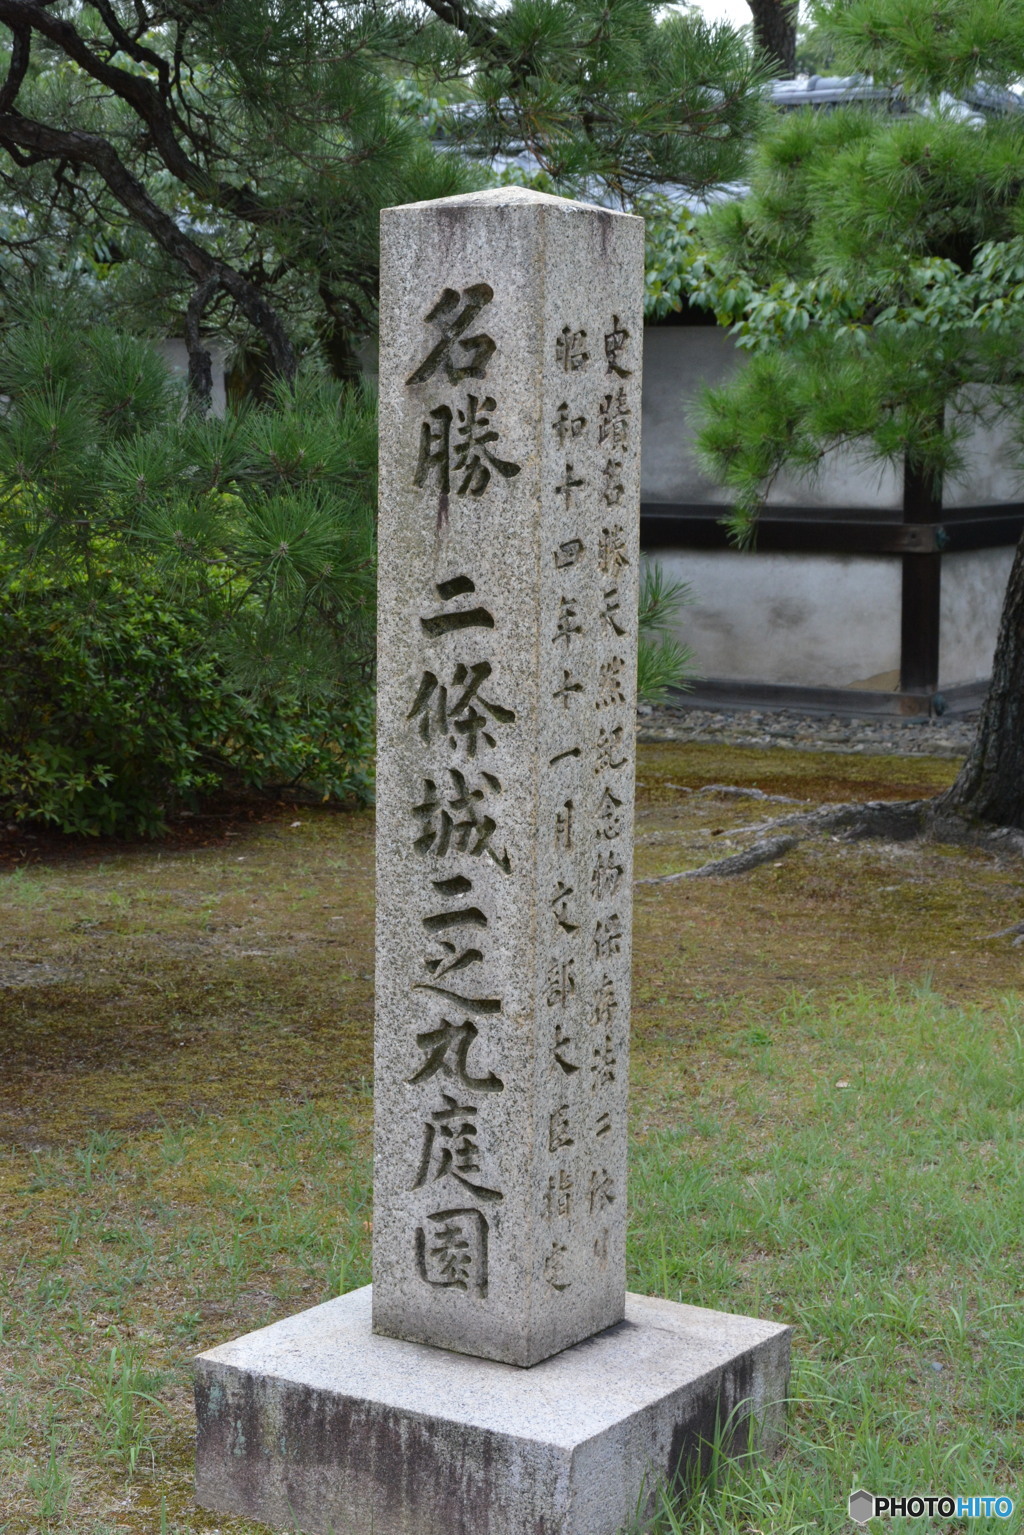 名勝 二條城二之丸庭園
史蹟名勝天然紀念物保存法ニ依リ
昭和十四年十一月文部大臣指定
PHOTOHITO